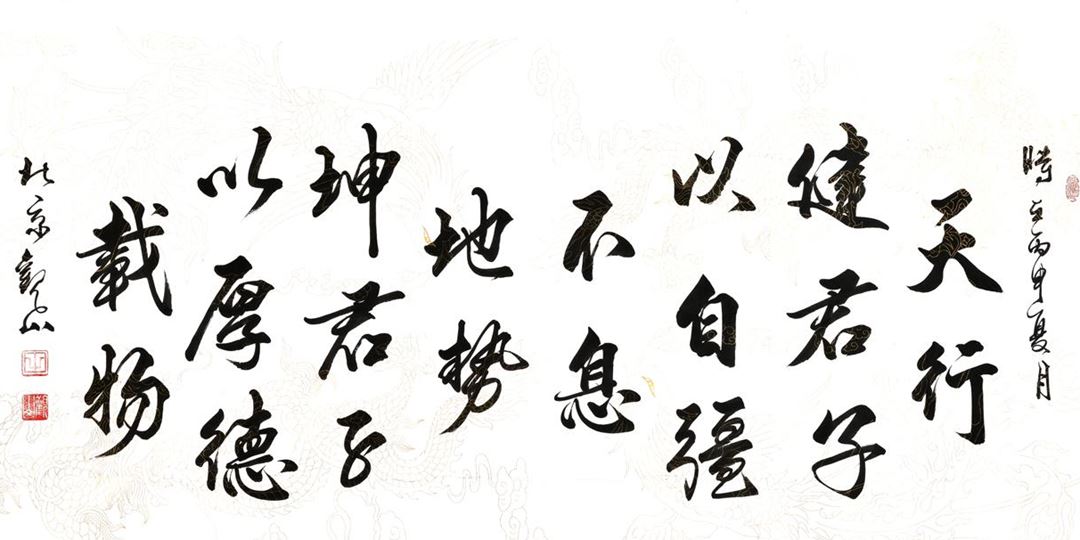 時在丙申夏月
天行
健君子
以自彊
不息
地势
坤君子
以厚德
載物
北京觀山